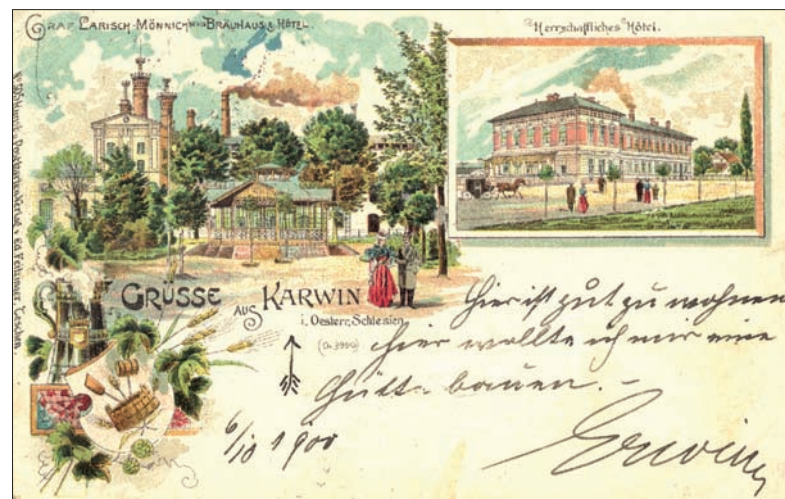 GRAF LARISCH-MÖNNICH BRÄUHAUS & HÔTEL.
Herrschaftliches Hôtel.
Ed. Feitzinger, Teschen.
GRÜSSE AUS KARWIN
i. Oesterr. Schlesien
Hier ist gut zu wohnen
hier wollte ich mir eine
Hütte bauen. –
6/10 1900
Erwin